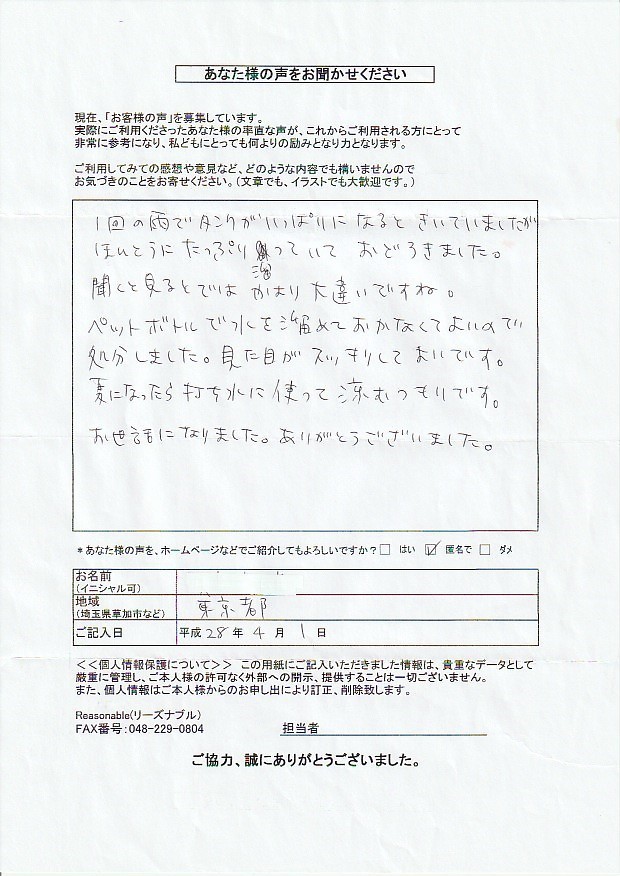 あなた様の声をお聞かせください
現在、「お客様の声」を募集しています。
実際にご利用くださったあなた様の率直な声が、これからご利用される方にとって
非常に参考になり、私どもにとっても何よりの励みとなり力となります。
ご利用してみての感想や意見など、どのような内容でも構いませんので
お気づきのことをお寄せください。(文章でも、イラストでも大歓迎です。)
1回の雨でタンクがいっぱいになるときいていましたが
ほんとうにたっぷり溜っていて おどろきました。
聞くと見るとでは かなり大違いですね。
ペットボトルで水を溜めておかなくてよいので
処分しました。見た目がスッキリしてよいです。
夏になったら打ち水に使って涼むつもりです。
お世話になりました。ありがとうございました。
*あなた様の声を、ホームページなどでご紹介してもよろしいですか?□ はい ☑ 匿名で □ ダメ
お名前
(イニシャル可)
地域
(埼玉県草加市など) 東京都
ご記入日 平成 28 年 4 月 1 日
<<個人情報保護について>> この用紙にご記入いただきました情報は、貴重なデータとして
厳重に管理し、ご本人様の許可なく外部への開示、提供することは一切ございません。
また、個人情報はご本人様からのお申し出により訂正、削除致します。
Reasonable(リーズナブル)
FAX番号:048-229-0804 担当者
ご協力、誠にありがとうございました。